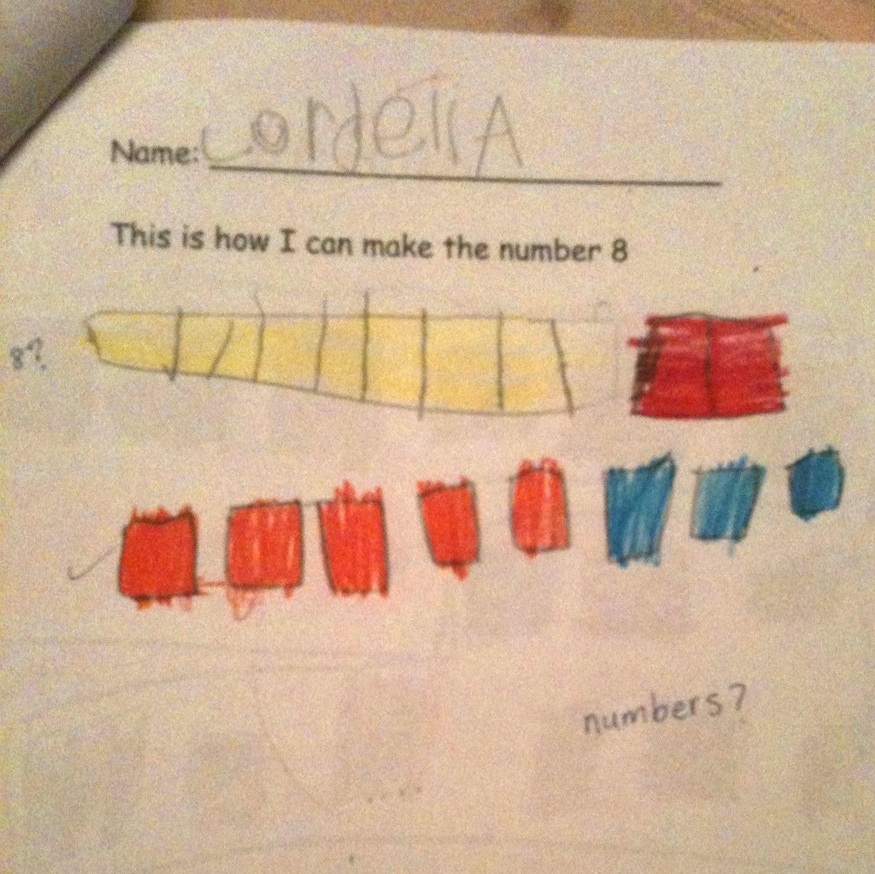 Name: CordellA
This is how I can make the number 8
8?
numbers?